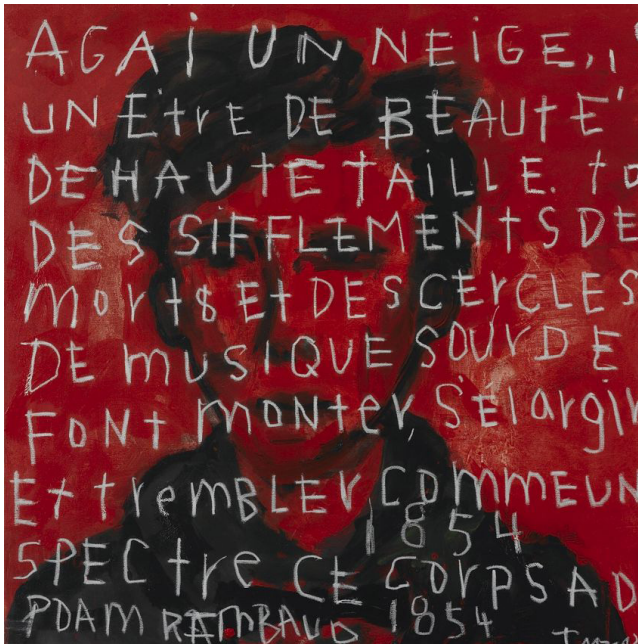 AGAi UN NEiGE,,
UN Etre DE BEAUtE'
DE HAUtE tAiLLE. to
DES SiFFLEMENtS DE
mortS Et DES CErCLES
DE muSiQUE SOUrDE
FONt monter, S'Elargir
Et tremBLEr COMMEUN
1854
SPECtre CE COrpS AD
PDAM REmBAUD 1854